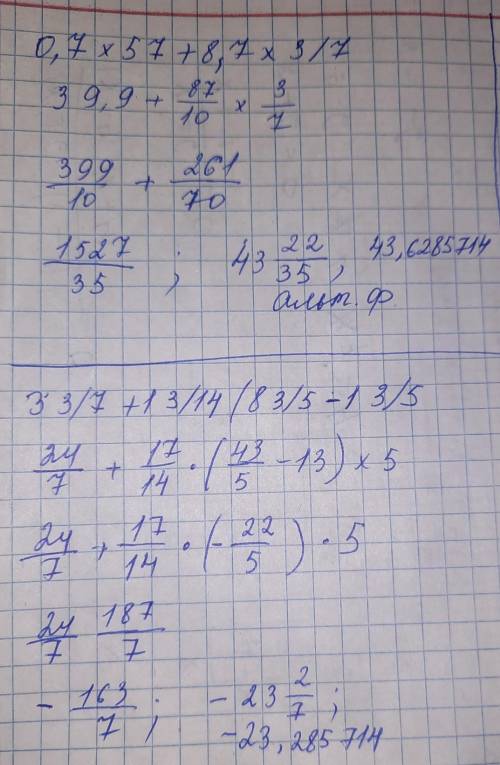 0,7 × 57 + 8,7 × 3/7
39,9 + 87/10 × 3/7
399/10 + 261/70
1527/35 ; 43 22/35, 43,6285714
альт. ф.
3 3/7 + 1 3/14 (8 3/5 - 1 3/5
24/7 + 17/14 · (43/5 - 13) × 5
24/7 + 17/14 · (- 22/5) · 5
24/7 187/7
- 163/7 ; - 23 2/7 ;
-23,285714